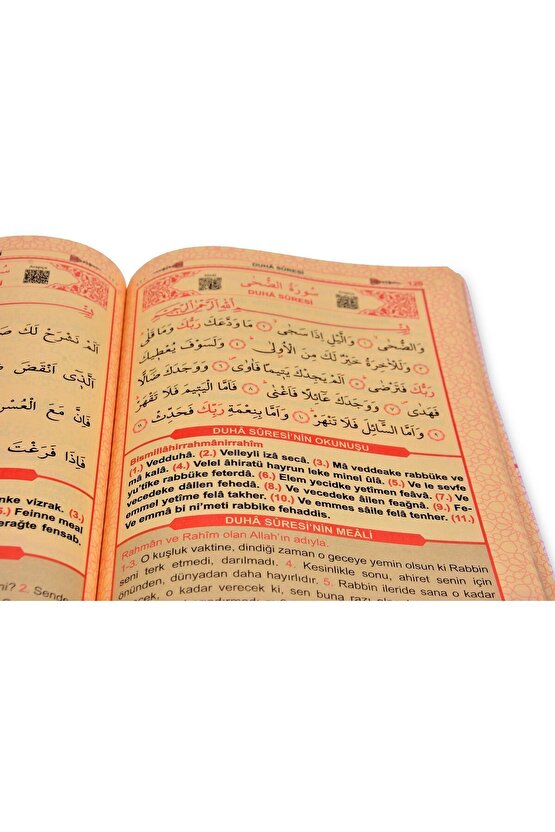 DUHÂ SÛRESİ
128
سُورَةُ الضُّحٰى
DUHÂ SÛRESİ
وَالضُّحٰىۙ ﴿١﴾ وَالَّيْلِ اِذَا سَجٰىۙ ﴿٢﴾ مَا وَدَّعَكَ رَبُّكَ وَمَا قَلٰىۜ
﴿٣﴾ وَلَلْاٰخِرَةُ خَيْرٌ لَكَ مِنَ الْاُو۫لٰىۜ ﴿٤﴾ وَلَسَوْفَ يُعْط۪يكَ
رَبُّكَ فَتَرْضٰىۜ ﴿٥﴾ اَلَمْ يَجِدْكَ يَت۪يمًا فَاٰوٰىۖ ﴿٦﴾ وَوَجَدَكَ ضَٓالًّا
فَهَدٰىۖ ﴿٧﴾ وَوَجَدَكَ عَٓائِلًا فَاَغْنٰىۜ ﴿٨﴾ فَاَمَّا الْيَت۪يمَ فَلَا تَقْهَرْۜ
﴿٩﴾ وَاَمَّا السَّٓائِلَ فَلَا تَنْهَرْۜ ﴿١٠﴾ وَاَمَّا بِنِعْمَةِ رَبِّكَ فَحَدِّثْ ﴿١١﴾
DUHÂ SÛRESİ'NİN OKUNUŞU
Bismillâhirrahmânirrahîm
(1.) Vedduhâ. (2.) Velleyli izâ secâ. (3.) Mâ veddeake rabbüke ve
mâ kalâ. (4.) Velel âhiratü hayrun leke minel ûlâ. (5.) Ve le sevfe
yu'tîke rabbüke feterdâ. (6.) Elem yecidke yetîmen feâvâ. (7.) Ve
vecedeke dâllen fehedâ. (8.) Ve vecedeke âilen feağnâ. (9.) Fe-
emmel yetîme felâ takher. (10.) Ve emmes sâile felâ tenher. (11.)
Ve emmâ bi ni'meti rabbike fehaddis.
DUHÂ SÛRESİ'NİN MEÂLİ
Rahmân ve Rahîm olan Allah'ın adıyla.
1-3. O kuşluk vaktine, dindiği zaman o geceye yemin olsun ki Rabbin
seni terk etmedi, darılmadı. 4. Kesinlikle sonu, ahiret senin için
önünden, dünyadan daha hayırlıdır. 5. Rabbin ileride sana o kadar
verecek ki, sen buna razı
اَلَمْ نَشْرَحْ لَكَ
الَّذ۪ٓي اَنْقَضَ
فَاِنَّ مَعَ الْعُسْرِ
فَاِذَا فَرَغْتَ
nke vizrak. (3.)
5.) Feinne meal
erağte fensab.
mi? 2. Senden